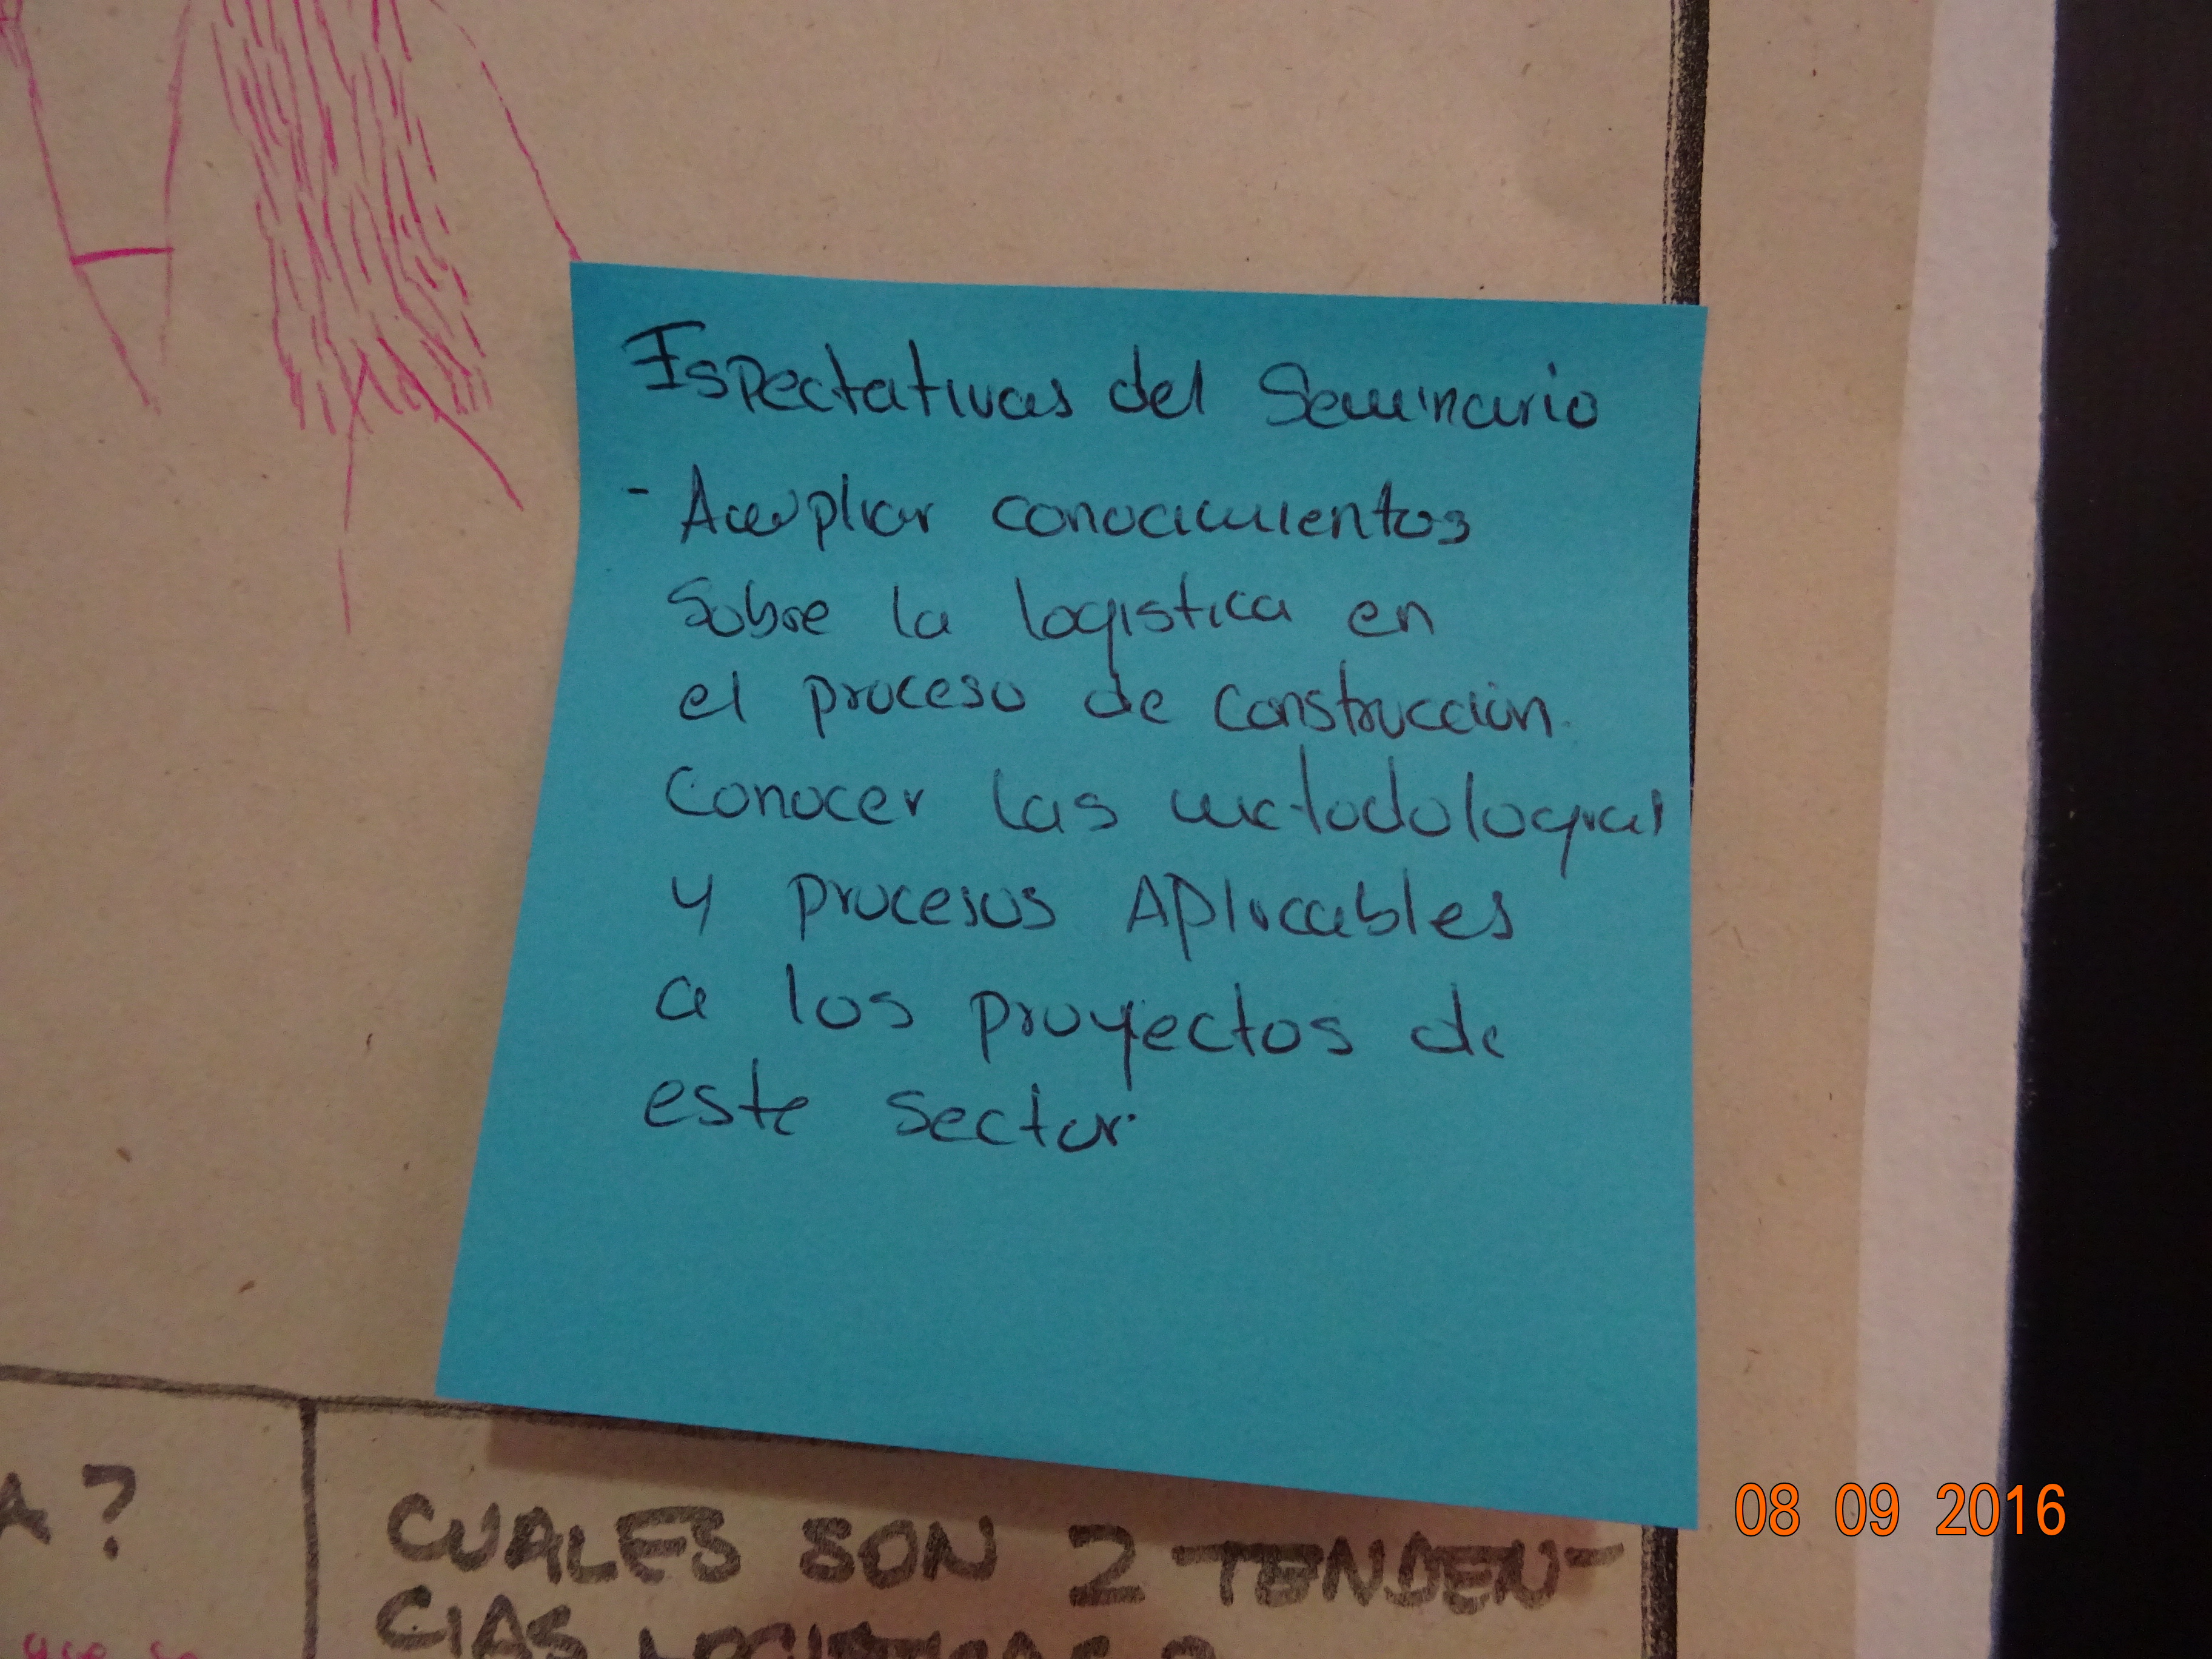 Espectativas del Seminario
- Ampliar conocimientos
Sobre la logistica en
el proceso de construcción.
Conocer las metodologias
y procesos Aplicables
a los proyectos de
este sector.
A?
CUALES SON 2 TENDEN-
CIAS LOGISTICAS?
que se
08 09 2016